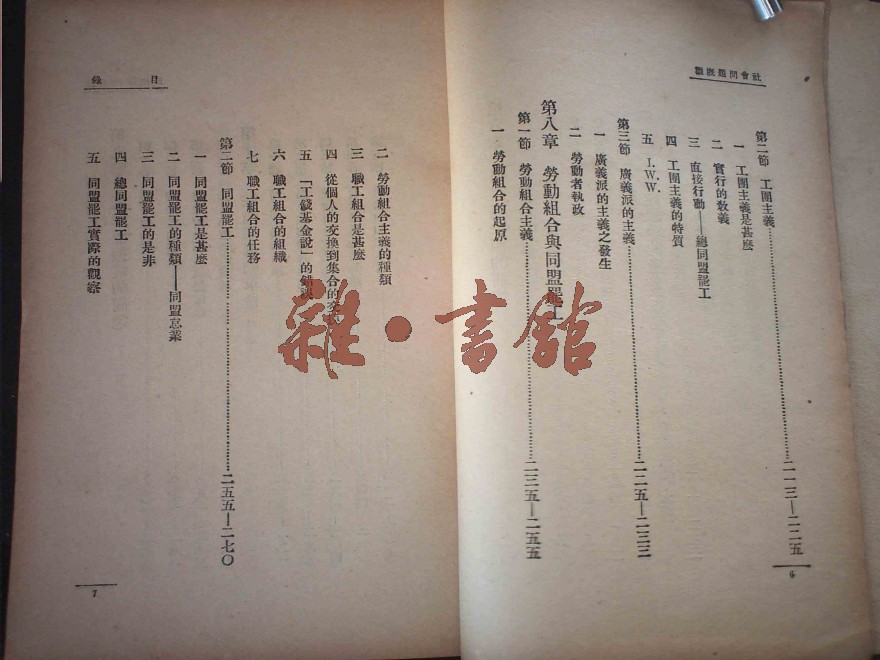 社會問題概觀
第二節 工團主義……二一三—二二五
一 工團主義是甚麼
二 實行的教義
三 直接行動——總同盟罷工
四 工團主義的特質
五 I.W.W.
第三節 廣義派的主義……二二五—二三三
一 廣義派的主義之發生
二 勞動者執政
第八章 勞動組合與同盟罷工
第一節 勞動組合主義……二三五—二五五
一 勞動組合的起原
6
目錄
二 勞動組合主義的種類
三 職工組合是甚麼
四 從個人的交換到集合的交
五 「工錢基金說」的錯
六 職工組合的組織
七 職工組合的任務
第二節 同盟罷工……二五五—二七〇
一 同盟罷工是甚麼
二 同盟罷工的種類——同盟怠業
三 同盟罷工的是非
四 總同盟罷工
五 同盟罷工實際的觀察
7
雜·書館